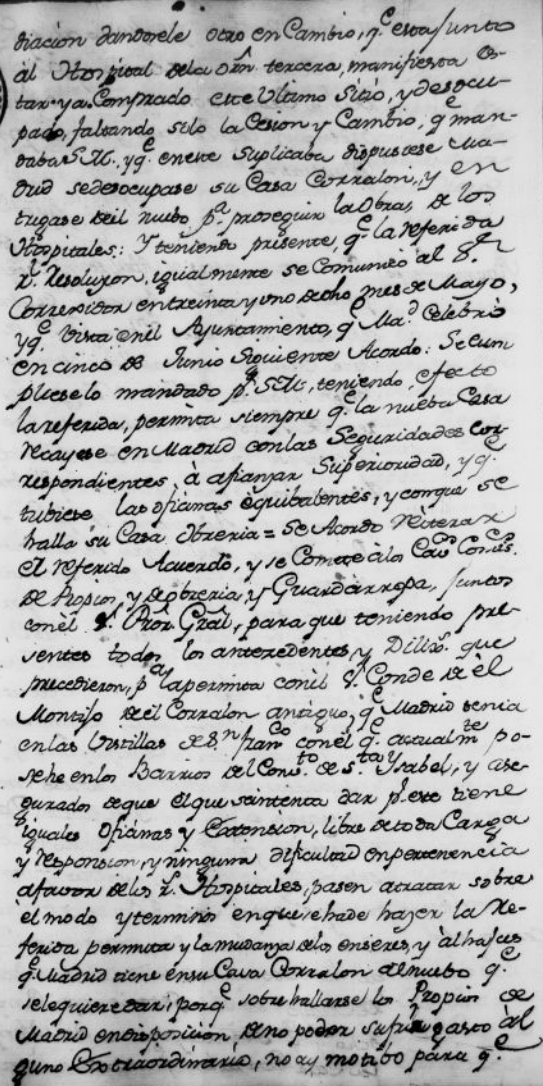 diacion dandosele otro en Cambio, q.e esta junto
al Hospital dela Orn̄ tercera, manifiesta es-
tar ya Comprado este Ultimo Sitio, y desocu-
pado, faltando solo la Cesion y Cambio, q.e man-
daba S.M., y q.e en este Suplicaba dispusiese Ma-
drid se desocupase su Casa Corralon, y en
tregase del nuebo p.a proseguir la Obra, de los
Hospitales: Y teniendo presente, q.e la referida
r.l Resoluzon, igualmente se Comunicó al S.or
Correxidor en treinta y uno de dho mes de Mayo,
y q.e Vista en el Ayuntamiento, q.e Ma.d Celebró
en cinco de Junio Siguiente Acordo: Se cum
pliese lo mandado p.r S.M., teniendo, efecto
la referida, permuta siempre q.e la nueba Casa
recayese en Madrid con las Seguridades cor-
respondientes, à afianzar Superioridad, y q.e
tubiese las oficinas equibalentes, y conque se
halla su Casa Obreria = Se Acordó reiterar
el referido Acuerdo, y se Comete à los Cav.os Com.s
de Propios, y de obreria, y Guardarropa, juntos
con el S.r Prōr Grāl, para que teniendo pre-
sentes todos los antezedentes, y Dilix.s que
precedieron, p.a la permuta con el S.r Conde de èl
Montijo de el Corralon antiguo, q.e Madrid tenia
en las Vistillas de S.n fran.co con el q.e actualm.te po-
sehe en los Barrios del Conv.to de S.ta Ysabel, y ase-
gurados de que el que se intenta dar p.r este tiene
iguales Oficinas y Extension, libre de toda Carga
y responsion, y ninguna dificultad en pertenencia
a favor de los r.s Hospitales, pasen a tratar sobre
el modo y terminos en que se ha de hazer la Re-
ferida permuta y la mudanza de los enseres, y alhajas
q.e Madrid tiene en su Casa Corralon al nuebo q.e
se le quiere dar, porq.e sobre hallarse los Propios de
Madrid en disposicion, de no poder sufrir gasto àl
guno Extraordinario, no ay motibo para q.e